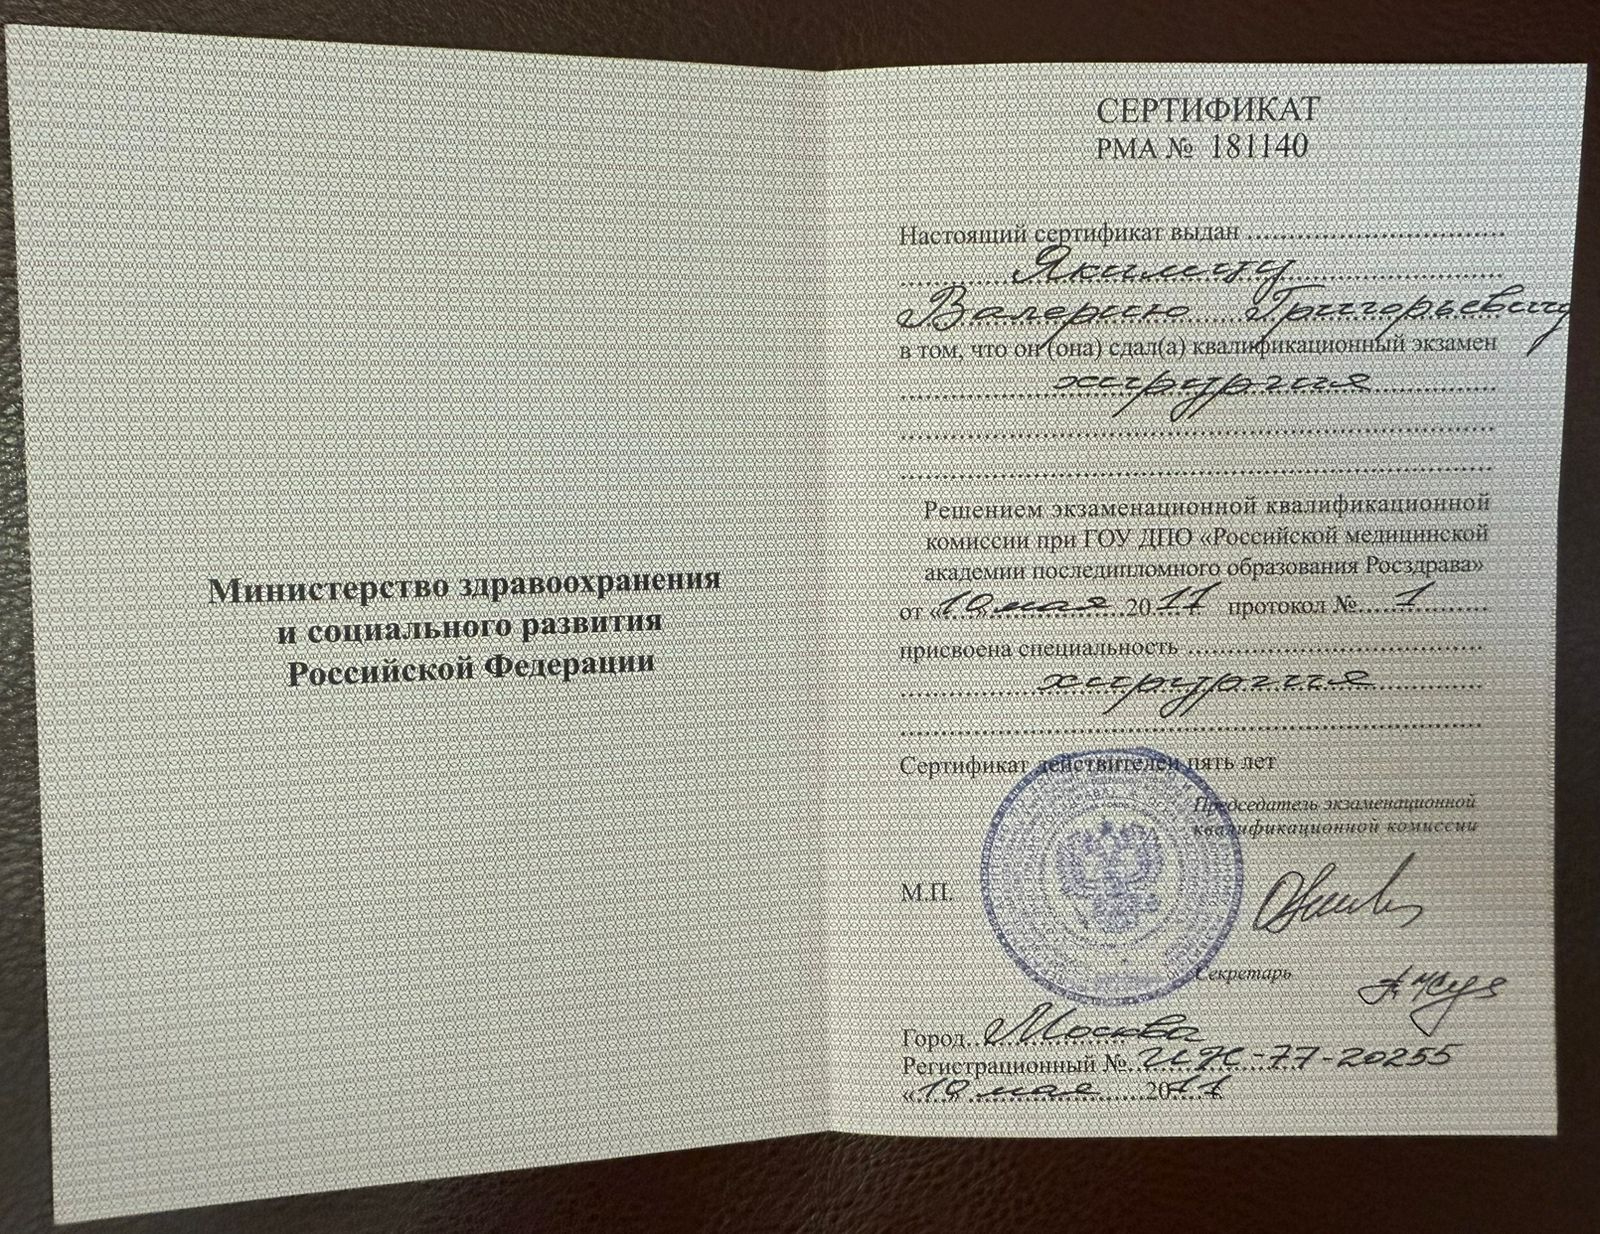 Министерство здравоохранения
и социального развития
Российской Федерации
СЕРТИФИКАТ
РМА № 181140
Настоящий сертификат выдан
Якимцу
Валерию Григорьевичу
в том, что он (она) сдал(а) квалификационный экзамен
хирургия
Решением экзаменационной квалификационной
комиссии при ГОУ ДПО «Российской медицинской
академии последипломного образования Росздрава»
от «10» мая 2011 протокол № 1
присвоена специальность
хирургия
Сертификат действителен пять лет
Председатель экзаменационной
квалификационной комиссии
М.П.
Секретарь
Город Москва
Регистрационный № ИЖ-77-20255
«10» мая 2011